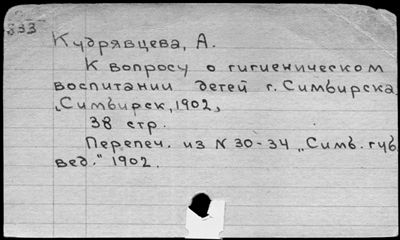 333
Кудрявцева, А.
К вопросу о гигиеническом
воспитании детей г. Симбирска.
„Симбирск, 1902,
38 стр.
Перепеч. из N 30-34 „Симб. губ.
вед." 1902.